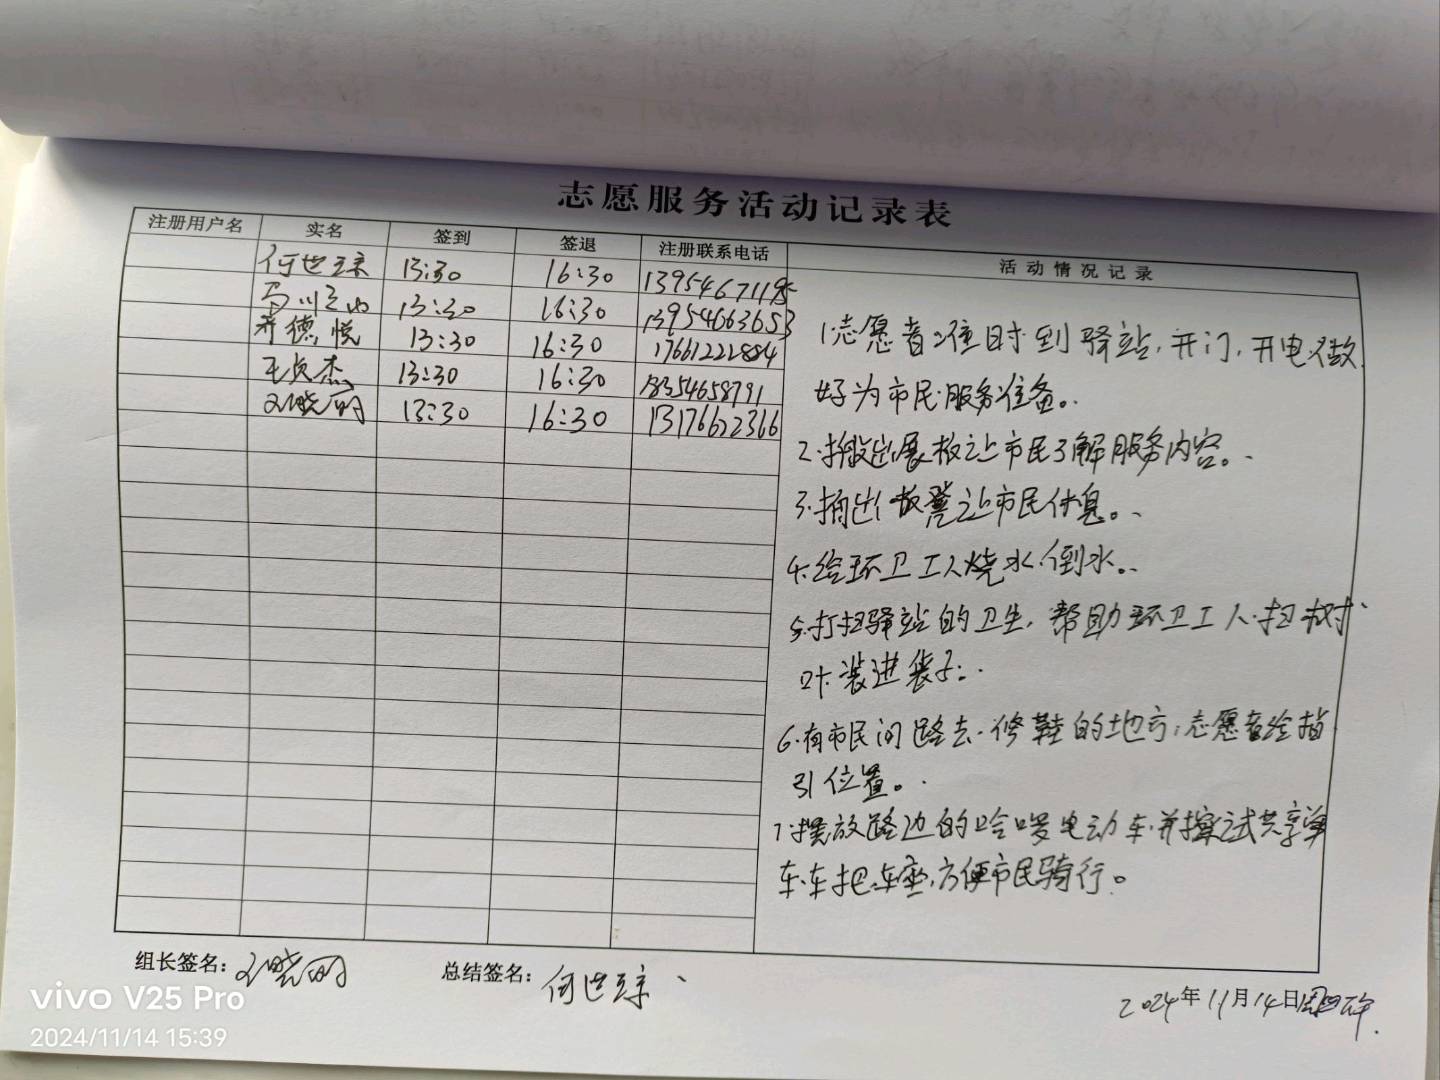 志愿服务活动记录表
注册用户名 实名 签到 签退 注册联系电话 活动情况记录
何世琼 13:30 16:30 13954671195
13:30 16:30 13954663653
乔德悦 13:30 16:30 17661222884
王贞杰 13:30 16:30 18354658791
晓丽 13:30 16:30 13176622366
1.志愿者准时到驿站,开门,开电,做
好为市民服务准备。
2.搬出展板让市民了解服务内容。
3.搬出板凳让市民休息。
4.给环卫工人烧水倒水。
5.打扫驿站的卫生,帮助环卫工人扫树
叶装进袋子。
6.有市民问路去修鞋的地方,志愿者给指
引位置。
7.摆放路边的哈啰电动车并擦试共享单
车车把车座,方便市民骑行。
组长签名: 晓丽 总结签名: 何世琼
2024年11月14日周四下午.
vivo V25 Pro
2024/11/14 15:39